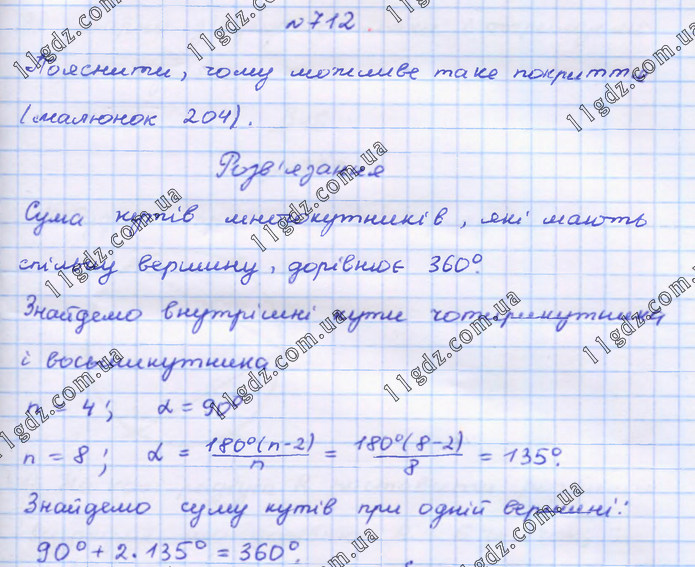 №712.
Пояснити, чому можливе таке покриття
(малюнок 204).
Розв'язання
Сума кутів многокутників, які мають
спільну вершину, дорівнює 360°.
Знайдемо внутрішні кути чотирикутника
і восьмикутника
n = 4; α = 90°
n = 8; α = 180°(n-2)/n = 180°(8-2)/8 = 135°.
Знайдемо суму кутів при одній вершині:
90° + 2·135° = 360°.
11gdz.com.ua